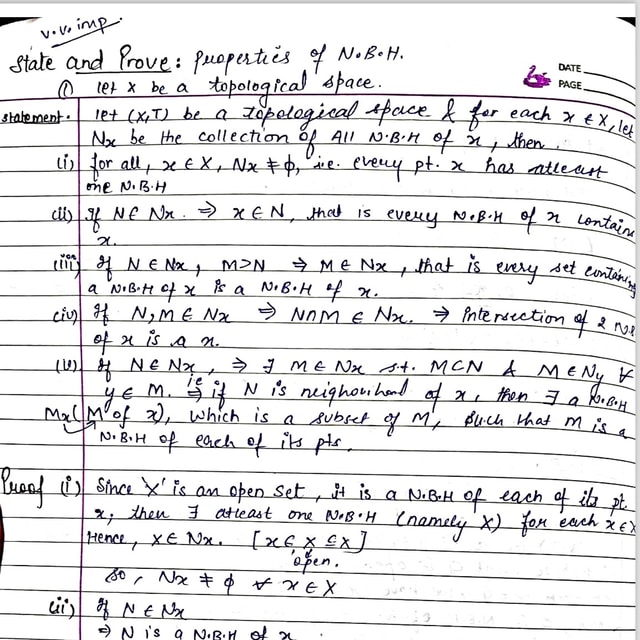 v.v.imp.
State and Prove: Properties of N.B.H.
DATE
PAGE
(i) let X be a topological space.
statement. let (X,T) be a topological space & for each x ∈ X, let
Nx be the collection of All N.B.H of x, then.
(i) for all, x ∈ X, Nx ≠ ϕ, i.e. every pt. x has atleast
one N.B.H
(ii) If N ∈ Nx. ⇒ x ∈ N, that is every N.B.H of x contains
x.
(iii) If N ∈ Nx, M>N ⇒ M ∈ Nx, that is every set containing
a N.B.H of x is a N.B.H of x.
(iv) If N,M ∈ Nx ⇒ N∩M ∈ Nx. ⇒ Intersection of 2 N.B
of x is a x.
(v) If N ∈ Nx, ⇒ ∃ M ∈ Nx s.t. M⊂N & M ∈ Ny ∀
y ∈ M. i.e ⇒ if N is neighourhood of x, then ∃ a N.B.H
Mx(M of x), which is a subset of M, such that m is a
N.B.H of each of its pts.
Proof (i) Since 'X' is an open set, it is a N.B.H of each of its pt.
x, then ∃ atleast one N.B.H (namely X) for each x ∈ X
Hence, X ∈ Nx. [x ∈ X ⊆ X]
open.
So, Nx ≠ ϕ ∀ x ∈ X
(ii) If N ∈ Nx
⇒ N is a N.B.H of x